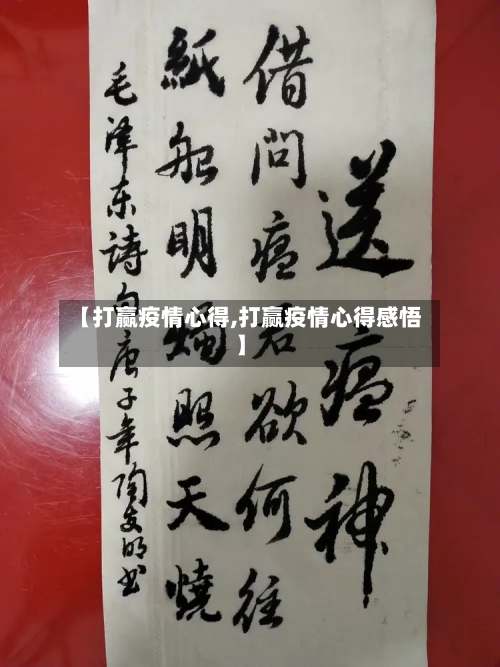 送瘟神
借問瘟君欲何往
紙船明燭照天燒
毛泽东詩句庚子年陶友明书
【打赢疫情心得,打赢疫情心得感悟
】